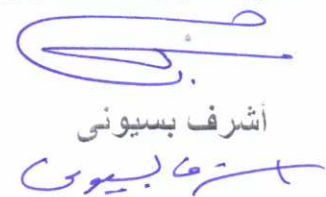 أشرف بسيونى
أشرف بسيونى